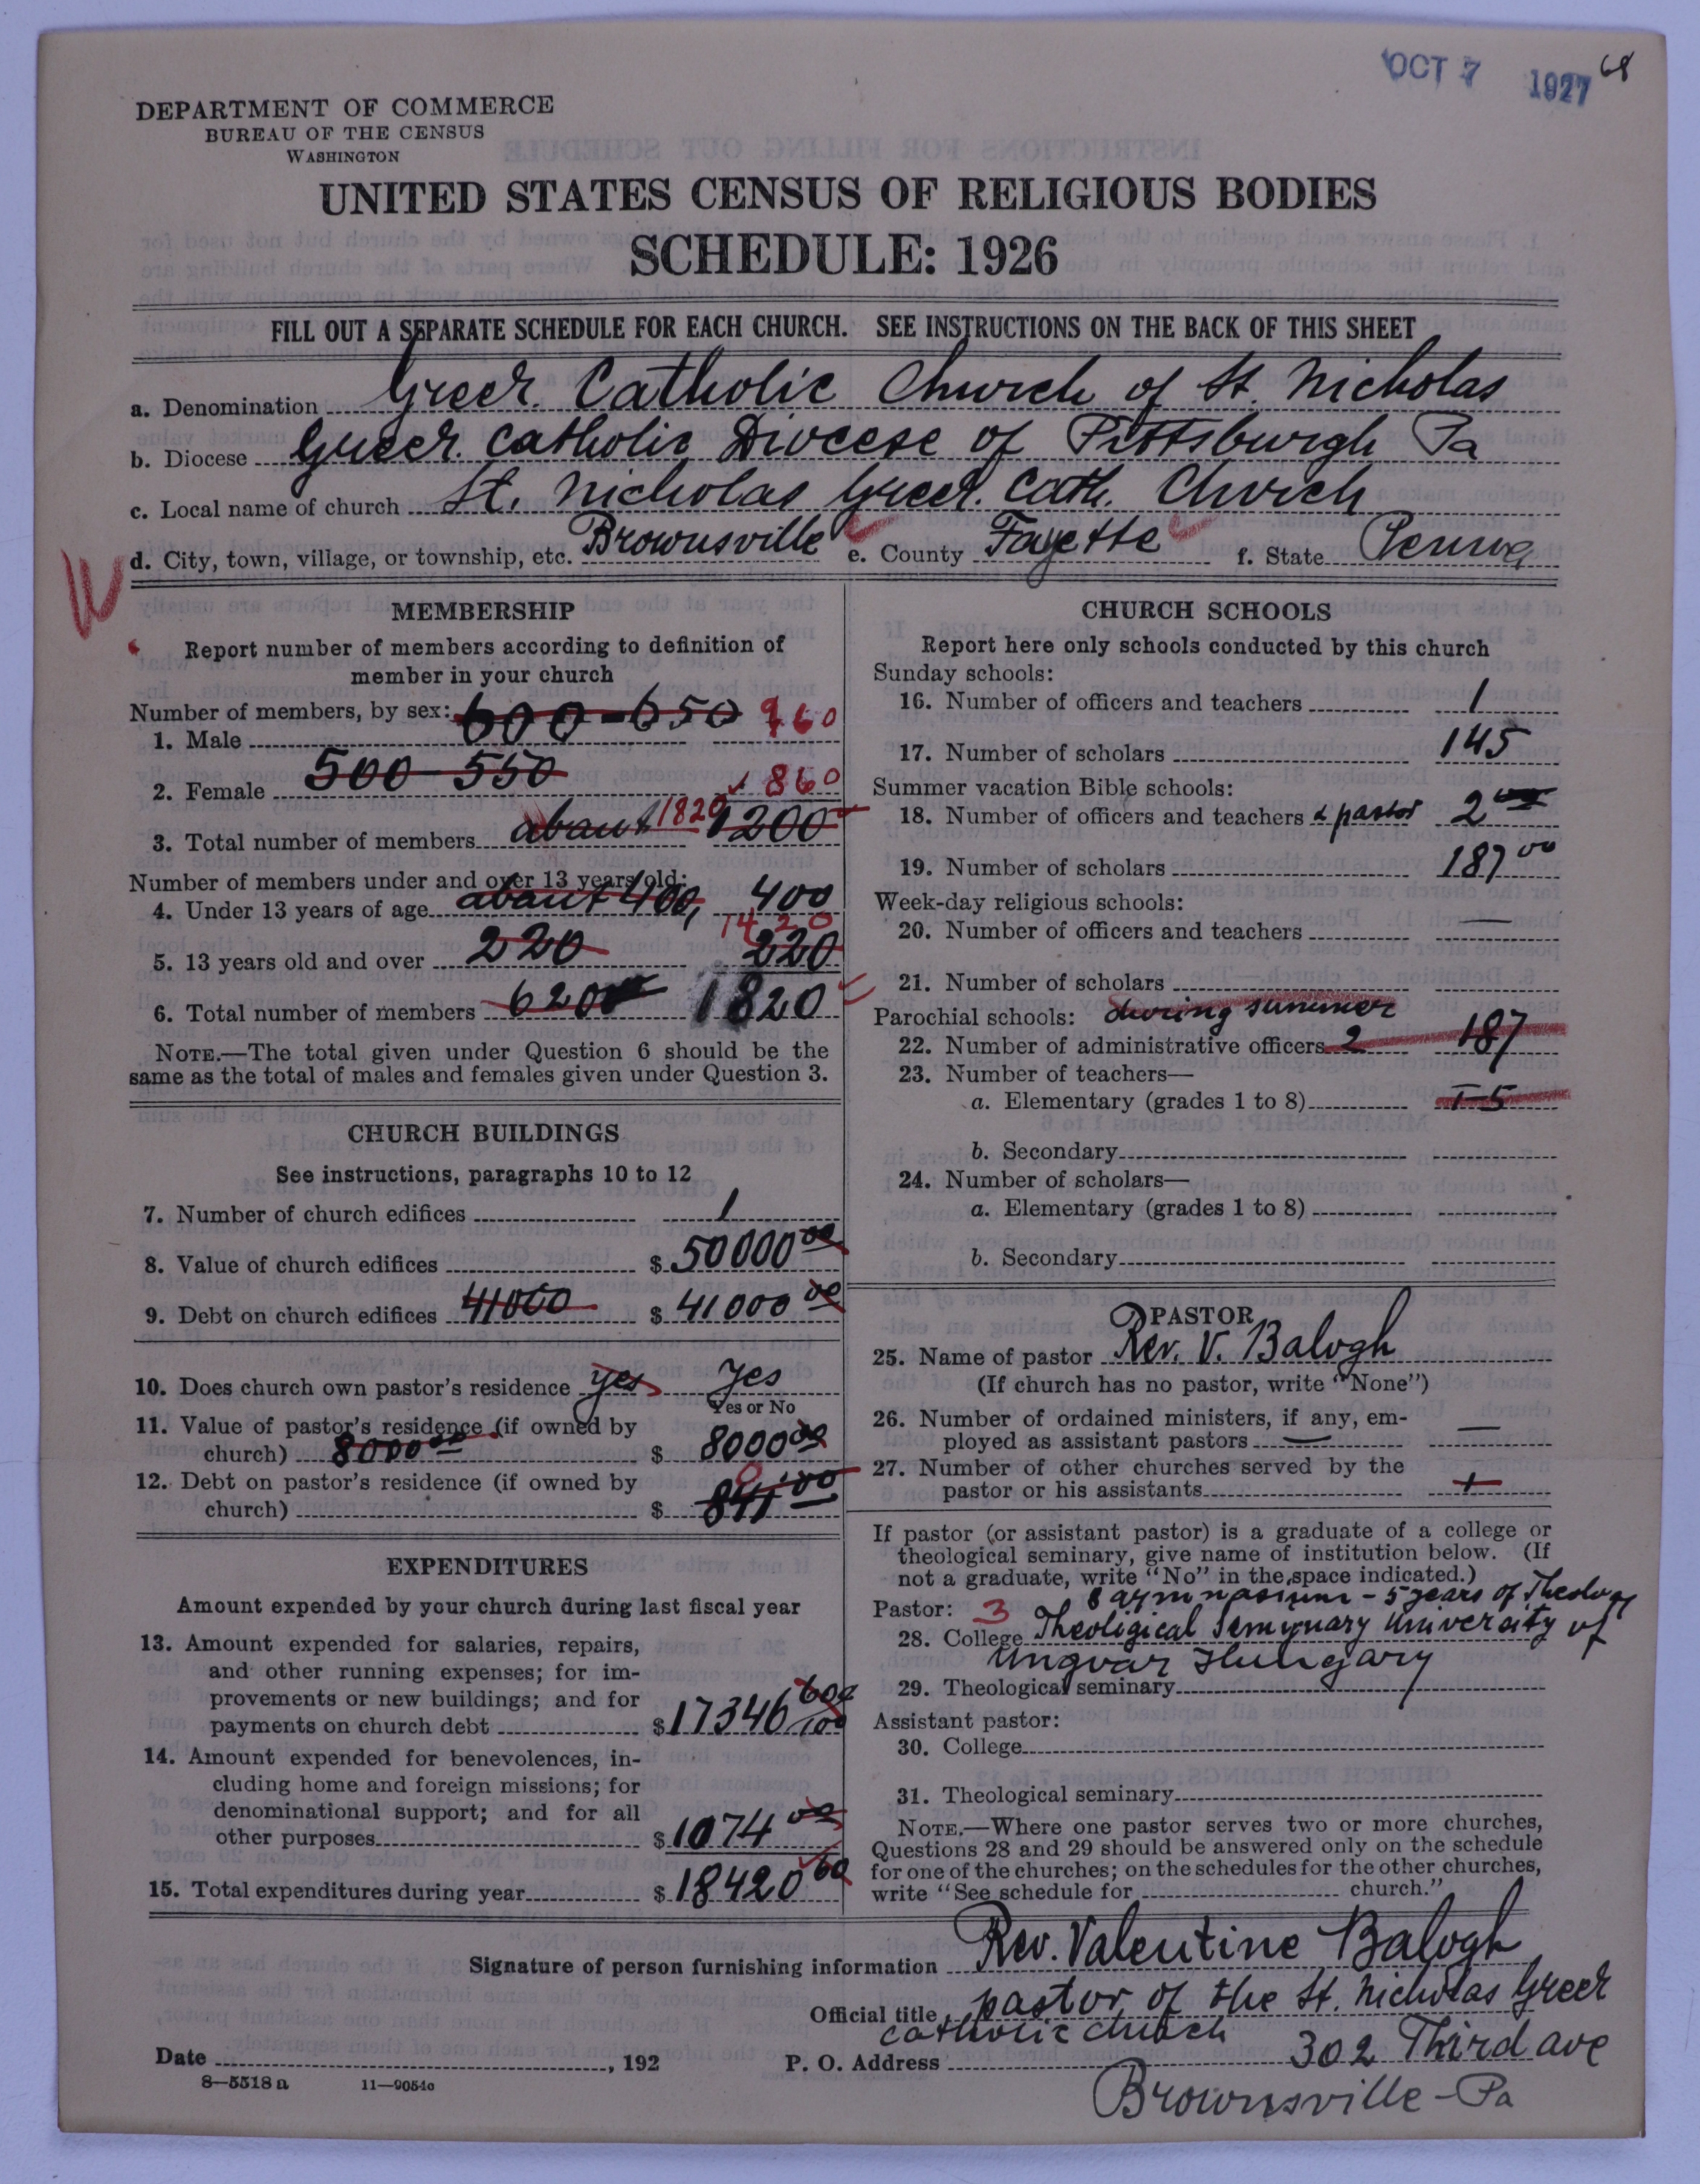 OCT 7 1927 68
DEPARTMENT OF COMMERCE
BUREAU OF THE CENSUS
WASHINGTON
UNITED STATES CENSUS OF RELIGIOUS BODIES
SCHEDULE: 1926
FILL OUT A SEPARATE SCHEDULE FOR EACH CHURCH. SEE INSTRUCTIONS ON THE BACK OF THIS SHEET
a. Denomination Greek Catholic Church of St. Nicholas
b. Diocese Greek Catholic Diocese of Pittsburgh Pa
c. Local name of church St. Nicholas Greek Cath. Church
d. City, town, village, or township, etc. Brownsville e. County Fayette f. State Penna
MEMBERSHIP
Report number of members according to definition of
member in your church
Number of members, by sex:
1. Male 600-650 960
2. Female 500-550 860
3. Total number of members about 1820 1200
Number of members under and over 13 years old:
4. Under 13 years of age about 400, 400
1420
5. 13 years old and over 220 220
6. Total number of members 620 1820
NOTE.—The total given under Question 6 should be the
same as the total of males and females given under Question 3.
CHURCH BUILDINGS
See instructions, paragraphs 10 to 12
7. Number of church edifices 1
8. Value of church edifices $ 50000 00
9. Debt on church edifices 41000 $ 41000 00
10. Does church own pastor's residence yes Yes
Yes or No
11. Value of pastor's residence (if owned by
church) 8000 00 $ 8000 00
12. Debt on pastor's residence (if owned by
church) $ 841 00
EXPENDITURES
Amount expended by your church during last fiscal year
13. Amount expended for salaries, repairs,
and other running expenses; for im-
provements or new buildings; and for
payments on church debt $ 17346 60/100
14. Amount expended for benevolences, in-
cluding home and foreign missions; for
denominational support; and for all
other purposes $ 1074 00
15. Total expenditures during year $ 18420 60
CHURCH SCHOOLS
Report here only schools conducted by this church
Sunday schools:
16. Number of officers and teachers 1
17. Number of scholars 145
Summer vacation Bible schools:
18. Number of officers and teachers & pastor 2
19. Number of scholars 187 00
Week-day religious schools:
20. Number of officers and teachers —
21. Number of scholars
Parochial schools: during summer
22. Number of administrative officers 2 187
23. Number of teachers—
a. Elementary (grades 1 to 8)
b. Secondary
24. Number of scholars—
a. Elementary (grades 1 to 8)
b. Secondary
PASTOR
25. Name of pastor Rev. V. Balogh
(If church has no pastor, write "None")
26. Number of ordained ministers, if any, em-
ployed as assistant pastors — —
27. Number of other churches served by the
pastor or his assistants
If pastor (or assistant pastor) is a graduate of a college or
theological seminary, give name of institution below. (If
not a graduate, write "No" in the space indicated.)
8 gymnasium - 5 years of Theology
Pastor: 3
28. College Theoligical Semynary University of
Ungvar Hungary
29. Theological seminary
Assistant pastor:
30. College
31. Theological seminary
NOTE.—Where one pastor serves two or more churches,
Questions 28 and 29 should be answered only on the schedule
for one of the churches; on the schedules for the other churches,
write "See schedule for church."
Signature of person furnishing information Rev. Valentine Balogh
Official title pastor of the St. Nicholas Greek
catholic church
Date , 192
P. O. Address 302 Third ave
Brownsville-Pa
8—5518 a 11—9054a